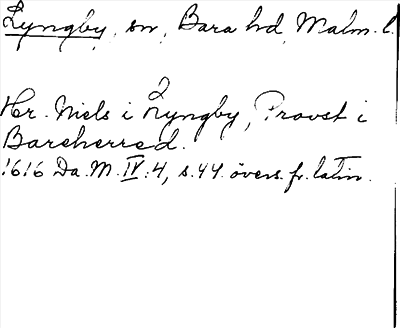 Lyngby, sn, Bara hd, Malm. l.
2
Hr. Niels i Lyngby, Provst i
Bareherred.
1616 Da. M. IV:4, s. 44. övers. fr. latin.